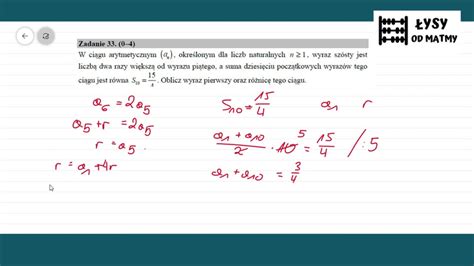 ŁYSY
OD MATMY
Zadanie 33. (0–4)
W ciągu arytmetycznym (aₙ), określonym dla liczb naturalnych n ≥ 1, wyraz szósty jest
liczbą dwa razy większą od wyrazu piątego, a suma dziesięciu początkowych wyrazów tego
ciągu jest równa S₁₀ = 15/4. Oblicz wyraz pierwszy oraz różnicę tego ciągu.
a₆ = 2a₅
a₅ + r = 2a₅
r = a₅
r = a₁ + 4r
S₁₀ = 15/4 a₁ r
(a₁ + a₁₀)/2 · 10 5 = 15/4 /:5
a₁ + a₁₀ = 3/4